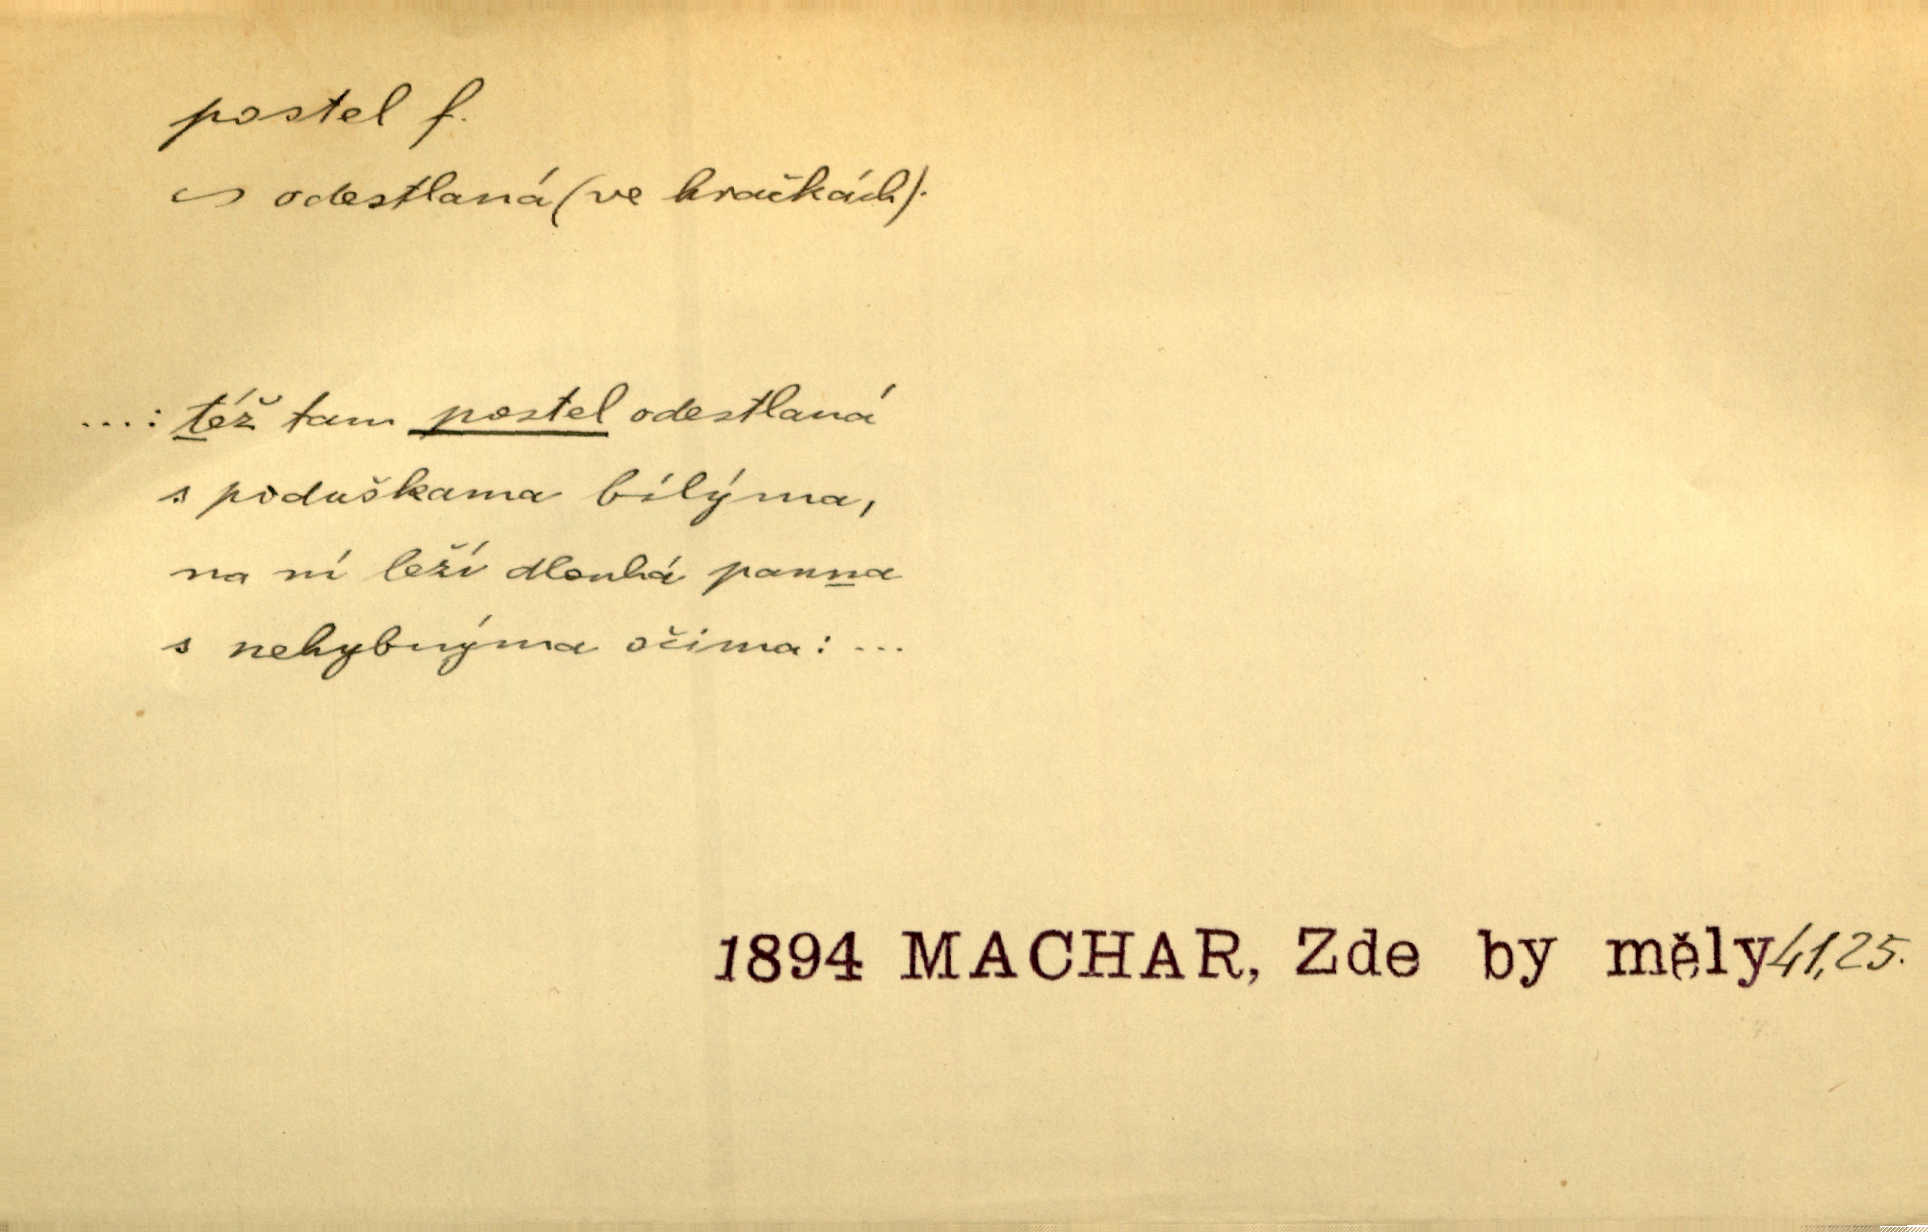 postel f.
~ odestlaná (ve hračkách).
...: též tam postel odestlaná
s poduškama bílýma,
na ní leží dlouhá panna
s nehybnýma očima: ...
1894 MACHAR, Zde by měly 41,25.